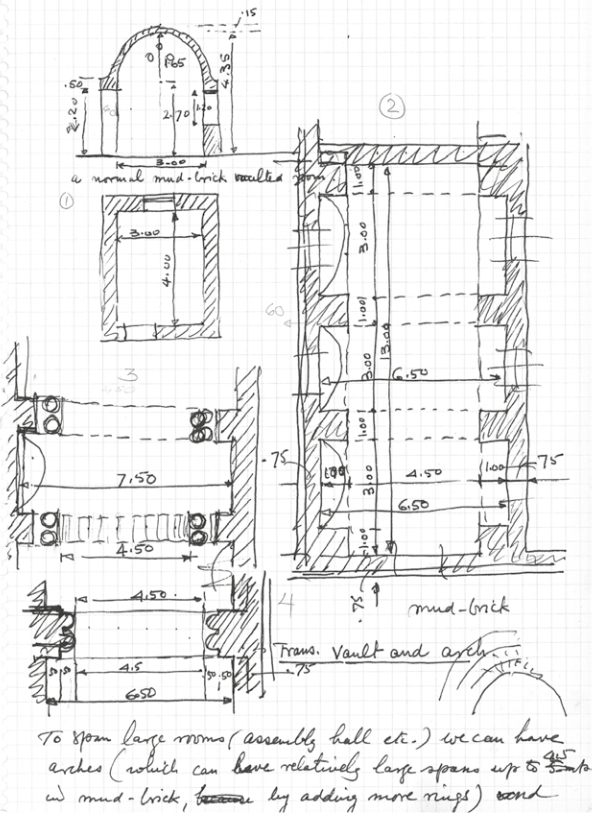 .15
.50
2.20
P65
4.35
2.70
1.20
3.00
a normal mud-brick vaulted room
①
3.00
4.00
②
1.00
3.00
1.00
60
3.00
13.00
6.50
1.00
.75
1.00
3.00
4.50
1.00
.75
6.50
1.00
.75
mud-brick
3
7.50
4.50
4
4.50
4.5
.50 .50
50 .50
.75
6.50
Trans. vault and arch.
To span large rooms (assembly hall etc.) we can have
arches (which can have relatively large spans up to 4.5
in mud-brick, by adding more rings) and